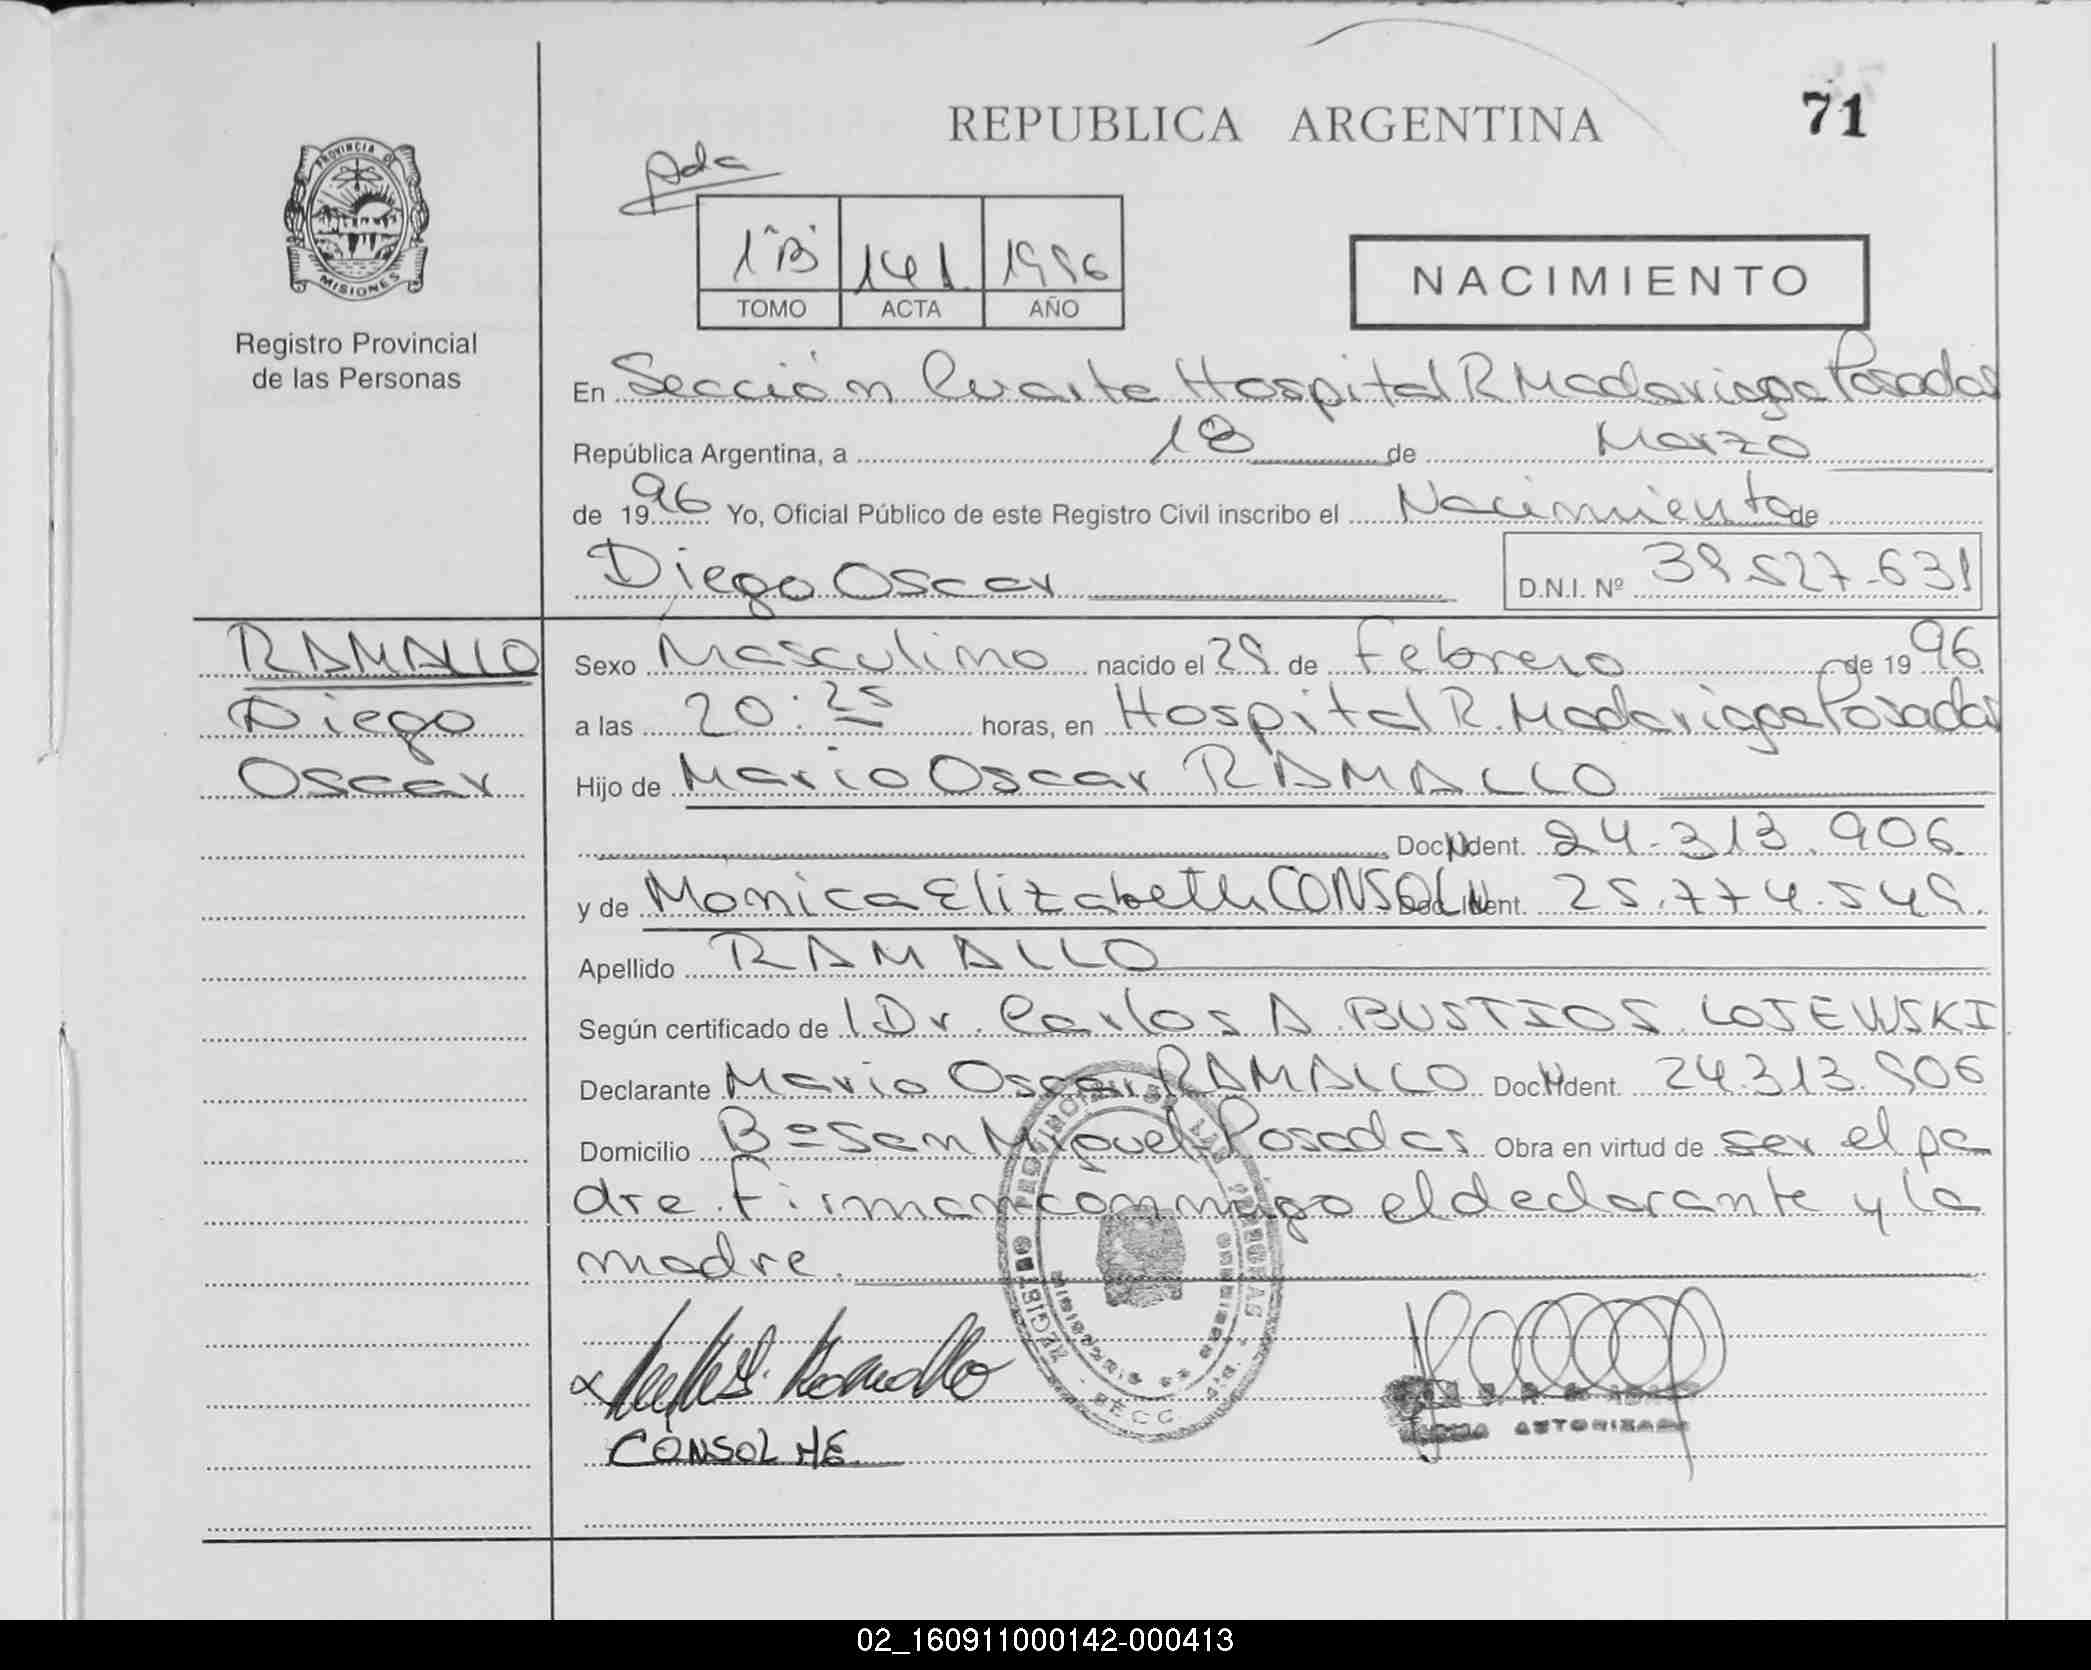 REPUBLICA ARGENTINA
71
PROVINCIA DE
MISIONES
Registro Provincial
de las Personas
1 "B" 141 1996
TOMO ACTA AÑO
NACIMIENTO
En Sección Cuarta Hospital R Madariaga Posadas
República Argentina, a 18 de Marzo
de 1996 Yo, Oficial Público de este Registro Civil inscribo el Nacimiento de
Diego Oscar D.N.I. Nº 39.527.631
RAMALLO
Diego
Oscar
Sexo Masculino nacido el 29 de Febrero de 1996
a las 20:25 horas, en Hospital R. Madariaga Posadas
Hijo de Mario Oscar RAMALLO
Doc. Ident. 24.313.906
y de Monica Elizabeth CONSOL Doc. Ident. 25.774.549.
Apellido RAMALLO
Según certificado de Dr. Carlos A. BUSTIOS LOJEWSKI
Declarante Mario Oscar RAMALLO Doc. Ident. 24.313.906
Domicilio Bº San Miguel Posadas Obra en virtud de ser el pa
dre. Firman conmigo el declarante y la
madre.
CONSOL ME
AUTORIZADA
02_160911000142-000413